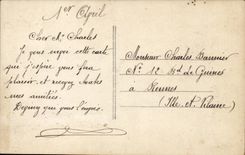 1er Avril
Cher Mr Charles
Je vous envoi cette carte
que j'espère vous fera
plaisir, et recevez toutes
mes amitiés
Devinez qui vous l'envoi
Monsieur Charles
No 12 Bd de Guines
à Rennes
(Ille-et-Vilaine)